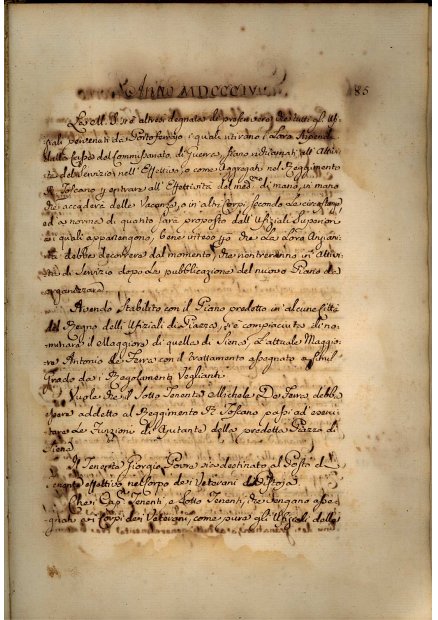 Anno MDCCCIV
85
La M. S. s'è altresì degnata di prescrivere, che tutti gl' Ufi-
ziali provenienti da Portoferrajo i quali ritirano i Loro Stipendi
dalla Cassa del Commissariato di Guerra, siano richiamati all' Attivi-
tà del Servizio nell' Effettivo, o come Aggregati nel Reggimento
R. Toscano p. entrare all' Effettività del med.° di mano, in mano
che accadere delle Vacanze, o in altri Corpi secondo le circostanze,
ed a norma di quanto sarà proposto dall' Ufiziali Superiori
ai quali appartengono, bene inteso p. che la Loro Anziani-
tà debba decorrere dal momento, che rientreranno in Attivi-
tà di Servizio dopo la pubblicazione del nuovo Piano da
organizzarsi
Avendo Stabilito con il Piano predetto in alcune Città
del Regno delli Ufiziali di Piazza, s'è compiaciuta di no-
minare il Maggiore di quella di Siena, l'attuale Maggio-
re Antonio de Ferra con il trattamento assegnato a simil
Grado dai Regolamenti Veglianti
Vuole che il Sotto Tenente Michele De Ferra debba
essere addetto al Reggimento R. Toscano passi ad eserci-
tare le Funzioni di Ajutante della predetta Piazza di
Siena
Il Tenente Giorgio sia destinato al Posto di
Tenente effettivo nel Corpo dei Veterani di Pistoja
Che i Cap. Tenenti e Sotto Tenenti, che vengano asse-
gnati ai Corpi dei Veterani, come pure gli Ufiziali delle